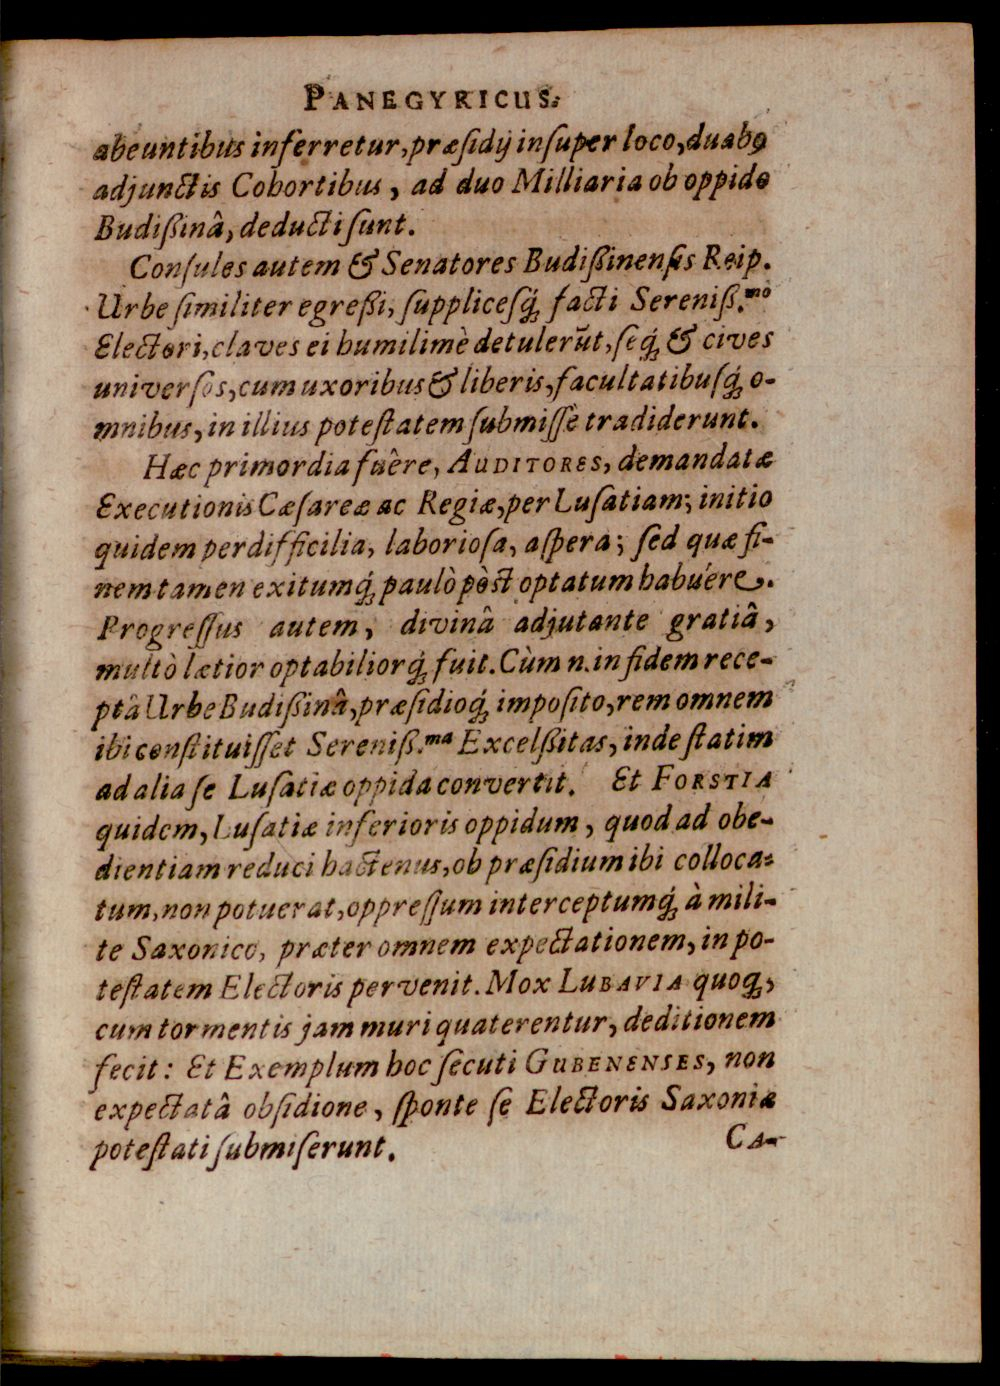 PANEGYRICUS.
abeuntibus inferretur, præſidij inſuper loco, duabꝰ
adjunctis Cohortibus, ad duo Milliaria ob oppido
Budißinâ, deducti ſunt.
Conſules autem & Senatores Budißinenſes Reip.
Urbe ſimiliter egreßi, ſupplicesq́; facti Sereniß.mo
Electori, claves ei humilimè detulerũt, ſeq́; & cives
univerſos, cum uxoribus & liberis, facultatibuſq́; o-
mnibus, in illius poteſtatem ſubmiſſè tradiderunt.
Hæc primordia fuêre, AUDITORES, demandatæ
Executionis Cæſareæ ac Regiæ, per Luſatiam; initio
quidem perdifficilia, laborioſa, aſpera; ſed quæ fi-
nem tamen exitumq́; paulò pòst optatum habuére.
Progreſſus autem, divinâ adjutante gratiâ,
multò lætior optabiliorq́; fuit. Cùm n. in fidem rece-
ptâ Urbe Budißinâ, præſidioq́; impoſito, rem omnem
ibi conſtituiſſet Sereniß.ma Excelſitas, inde ſtatim
ad alia ſe Luſatiæ oppida convertit. Et FORSTIA
quidem, Luſatiæ inferioris oppidum, quod ad obe-
dientiam reduci hactenus, ob præſidium ibi colloca-
tum, non potuerat, oppreſſum interceptumq́; à mili-
te Saxonico, præter omnem expectationem, in po-
teſtatem Electoris pervenit. Mox LUBAVIA quoq́;,
cum tormentis jam muri quaterentur, deditionem
fecit: Et Exemplum hoc ſecuti GUBENENSES, non
expectatâ obſidione, ſponte ſe Electoris Saxoniæ
poteſtati ſubmiſerunt.
CA-